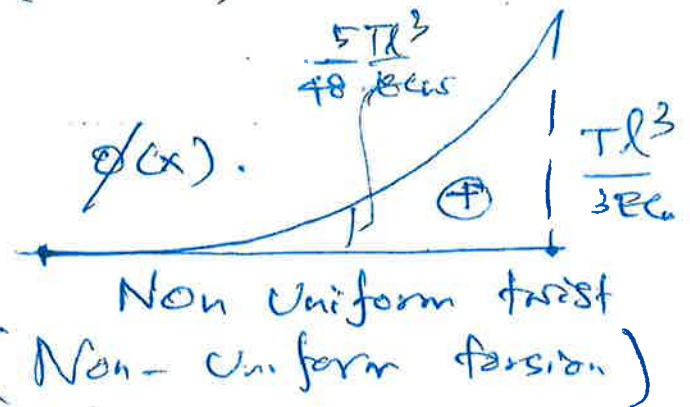 5 Tl³
48 ECw
φ(x).
Tl³
3ECw
+
Non Uniform twist
(Non-Uniform torsion)